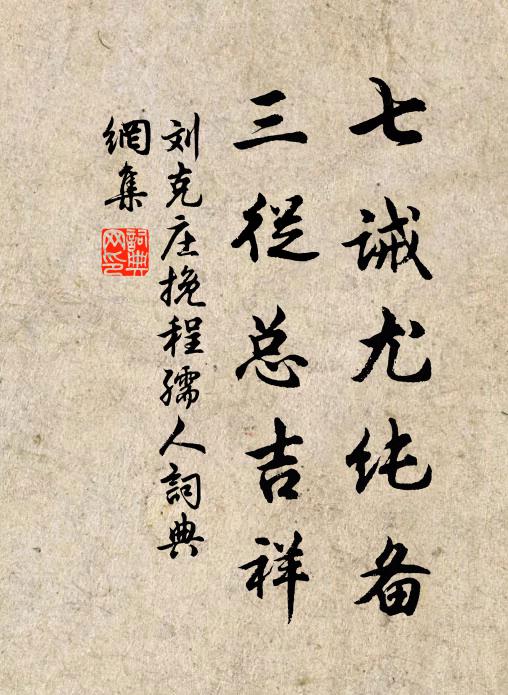 七诫尤纯备
三從总吉祥
刘克庄挽程孺人詞典
網集
詞典网印